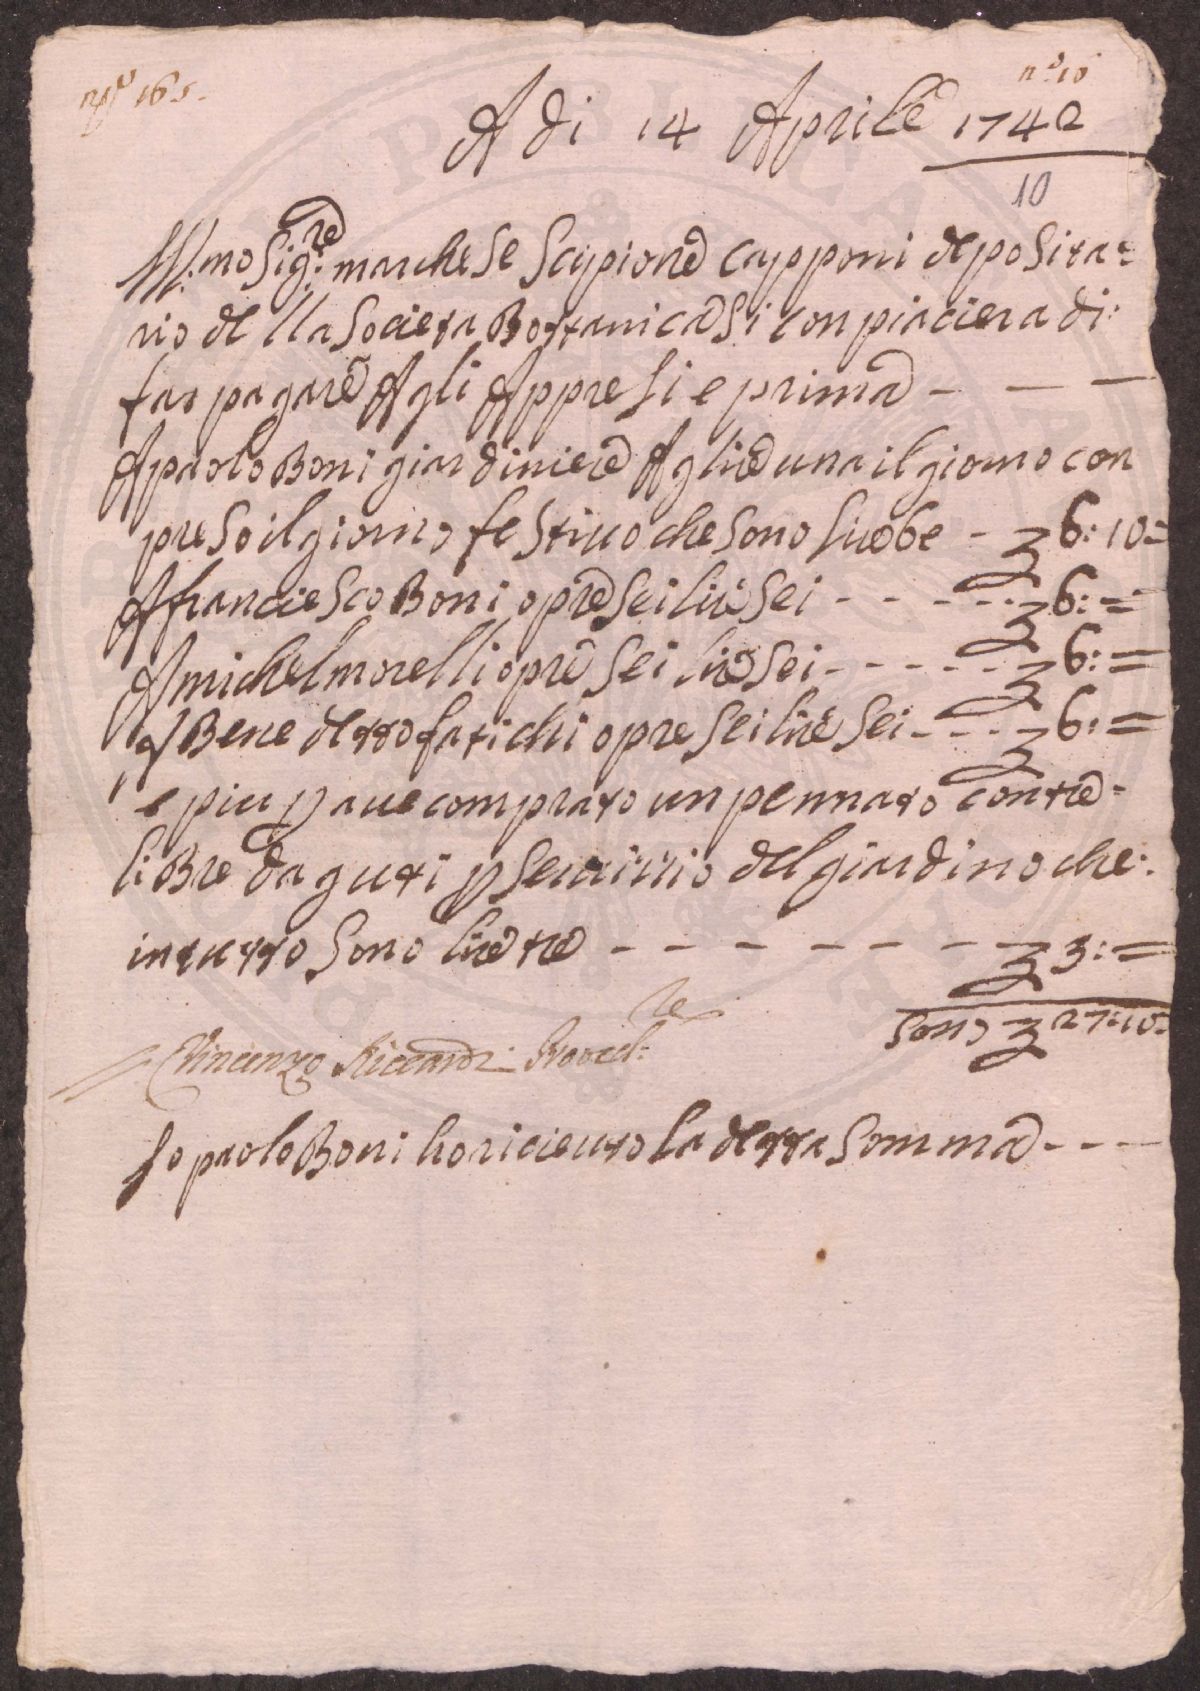 165.
n.º 10
A di 14 Aprile 1742
10
Ill:mo Sig:re marchese Scipione Capponi deposita=
rio della Societa Bottanica Si conpiaciera di:
far pagare Agli Appresi e prima - - -
A paolo Boni giardiniere A glire una il giorno con
preso il giorno festiuo che sono lire 6 e - ℥ 6: 10=
A franciesco Boni opre sei lire sei - - - - - ℥ 6: =
A michel morelli opre sei lire sei - - - - - ℥ 6: =
A Bene detto fatichi opre sei lire sei - - - - ℥ 6: =
e piu p aue comprato un pennato con tre -
liBre da guti p seruitio del giardino che:
in tutto sono lire tre - - - - - - - ℥ 3: =
sono ℥ 27:10=
Vincenzo Riccardi Proved:re
Io paolo Boni ho riceuto la detta somma - - -